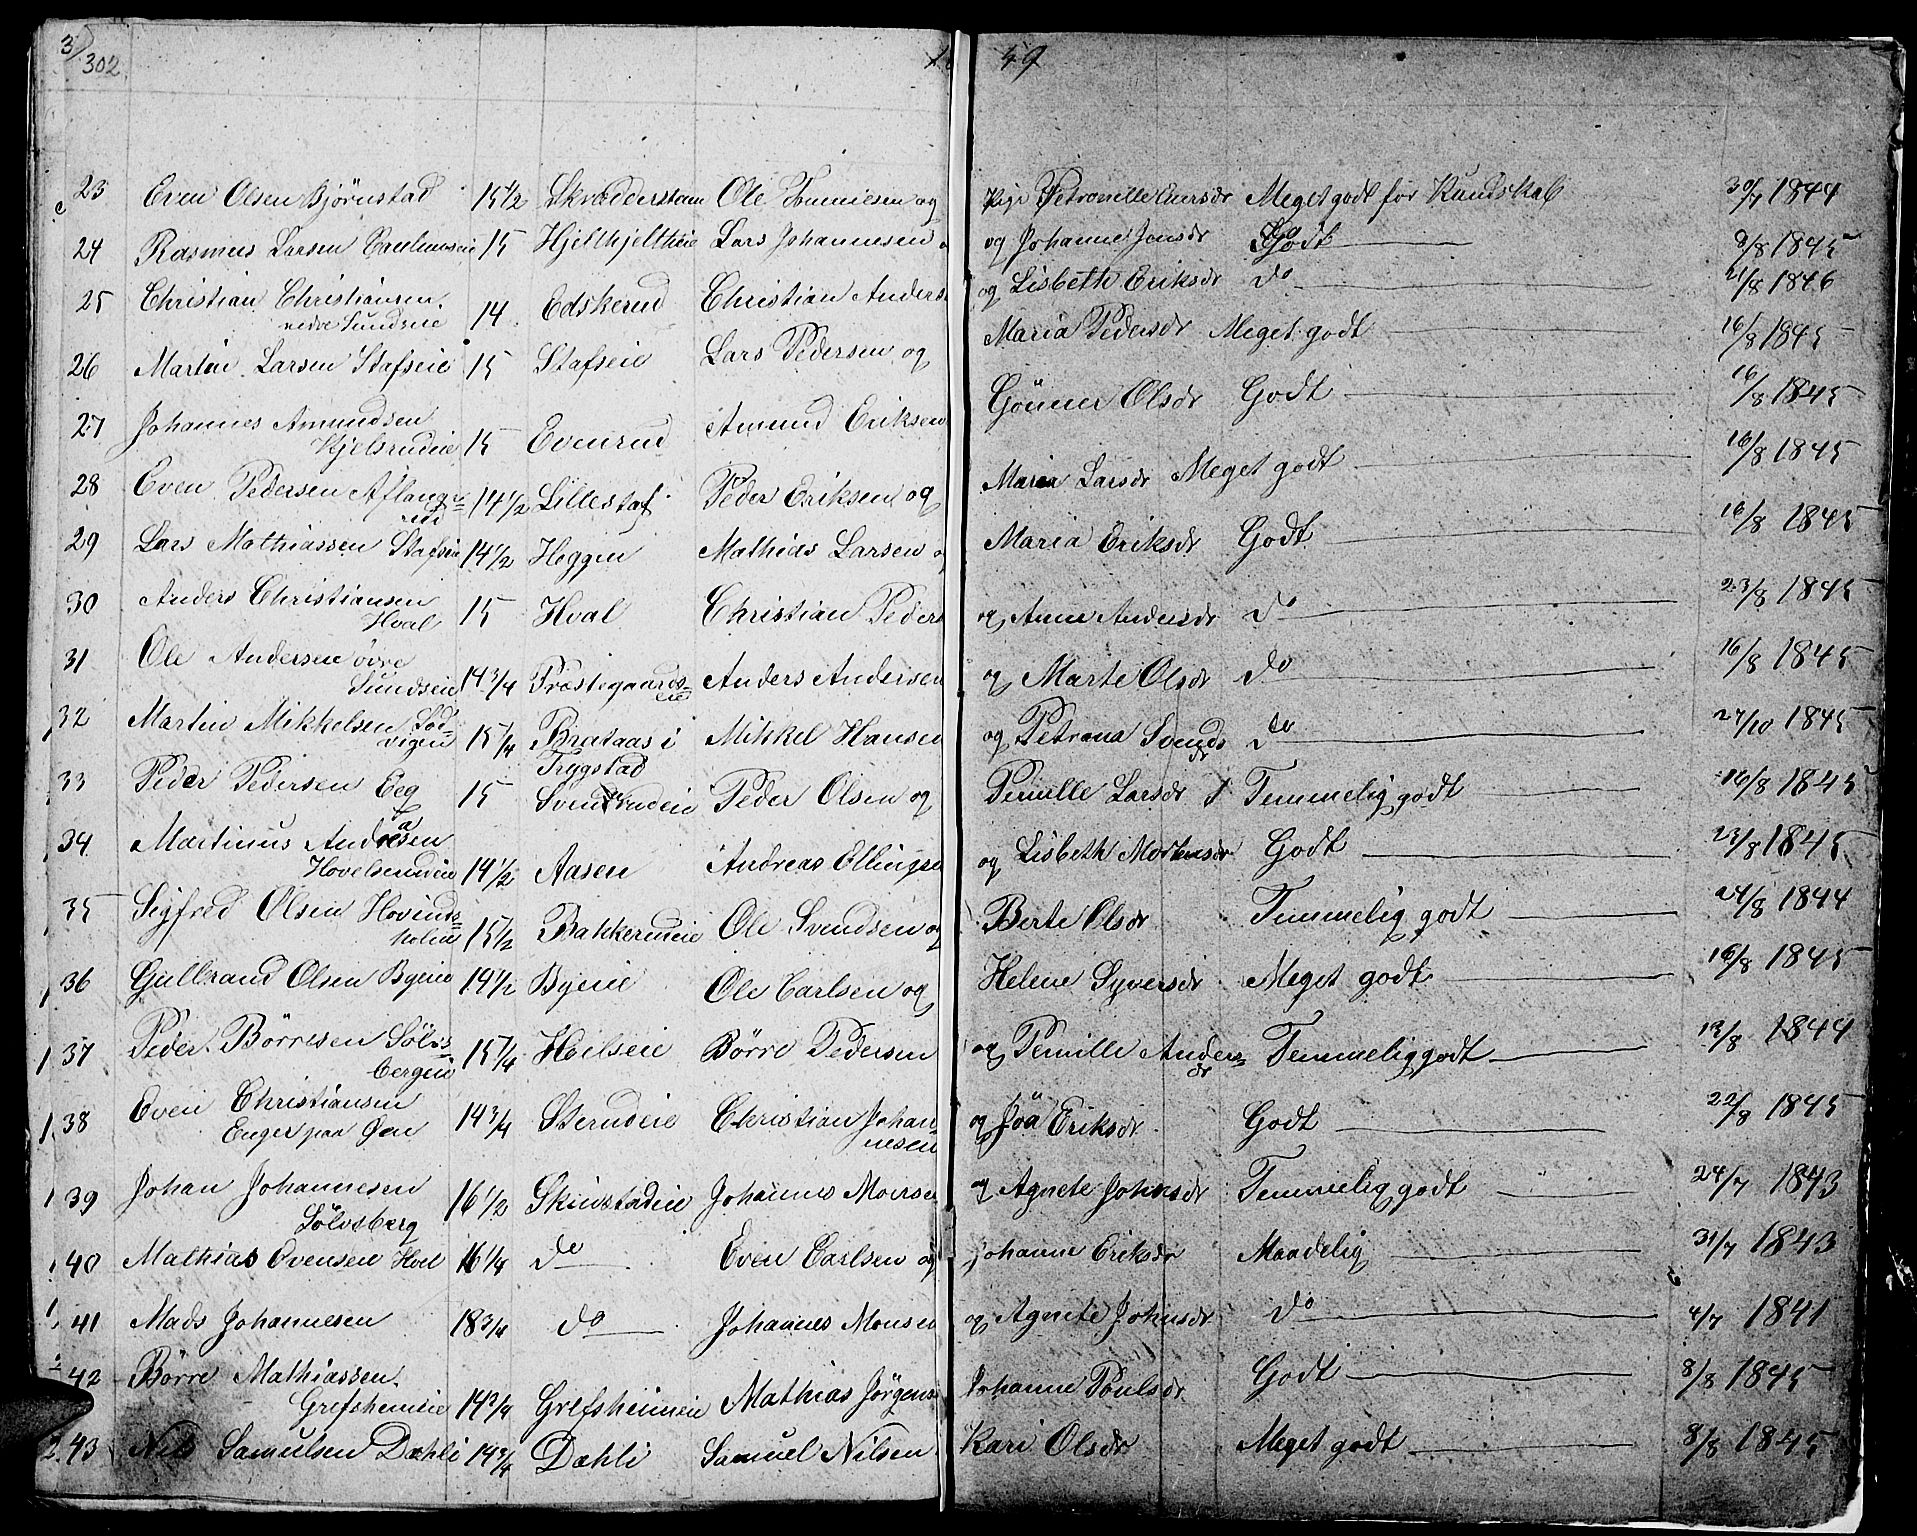 302 49
23 Even Olsen Bjørnstad 15 1/2 Skrædderstuen Ole Tomiesen og Pige Petronille Eversdr Meget godt for Kundskab 30/7 1844
24 Rasmus Larsen 15 Hjelthjeltheie Lars Johannesen og Johanne Jensdr Godt 9/8 1845
25 Christian Christiansen 14 Edskerud Christian Anders og Lisbeth Eriksdr do 21/8 1846
nedre Sundseie
26 Martin Larsen Stafseie 15 Stafseie Lars Pedersen og Maria Pedersdr Meget godt 16/8 1845
27 Johannes Amundsen 15 Evenrud Amund Eriksen Gönner Olsdr Godt 16/8 1845
Kjelsrudeie
28 Even Pedersen Aflang= 14 1/2 Lillestaf Peder Eriksen og Maria Larsdr Meget godt 16/8 1845
rud
29 Lars Mathiassen Stafseie 14 1/2 Heggen Mathias Larsen og Maria Eriksdr Godt 16/8 1845
30 Anders Christiansen 15 Hval Christian Peders og Anne Andersdr do 23/8 1845
Hval
31 Ole Andersen övre 14 3/4 Præstegaards= Anders Andersen og Marte Olsdr do 16/8 1845
Sundseie eie
32 Martin Mikkelsen Sod= 15 1/4 Brataas i Mikkel Hansen og Petrona Svends do 27/10 1845
vigen Trygstad dr
33 Peder Pedersen Eeg 15 Svendrudeie Peder Olsen og Pernille Larsdr Temmelig godt 16/8 1845
34 Martinus Andreasen 14 1/2 Aasen Andreas Ellingsen og Lisbeth Mortensdr Godt 23/8 1845
Hovelsrudeie
35 Sigfred Olsen Hovinds= 15 1/2 Bakkerudeie Ole Svendsen og Berte Olsdr Temmelig godt 24/8 1844
holm
36 Gulbrand Olsen Byeie 14 1/2 Byeie Ole Carlsen og Helene Syversdr Meget godt 16/8 1845
37 Peder Börresen Sölvs= 15 1/4 Hoilseie Börre Pedersen og Pernille Anders= Temmelig godt 13/8 1844
bergeie dr
38 Even Christiansen 14 3/4 Sterudeie Christian Johan= og Jöa Eriksdr Godt 22/8 1845
Enger paa Öen nesen
39 Johan Johannesen 16 1/2 Skinstadeie Johannes Monsen og Agnete Johnsdr Temmelig godt 24/7 1843
Sölvsberg
40 Mathias Evensen Hoel 16 1/4 do Even Carlsen og Johanne Eriksdr Maadelig 31/7 1843
41 Mads Johannesen 18 3/4 do Johannes Monsen og Agnete Johnsdr do 4/7 1841
42 Börre Mathiassen 14 3/4 Grefsheimeie Mathias Jörgens Johanne Poulsdr Godt 8/8 1845
Grefsheimeie
43 Nils Samuelsen Dæhli 14 3/4 Dæhli Samuel Nilsen Kari Olsdr Meget godt 8/8 1845